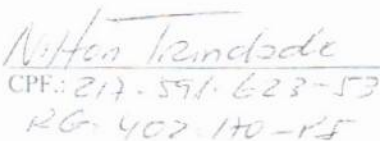 Nilton Trindade
CPF.: 217.591.623-53
RG. 402.170-PI